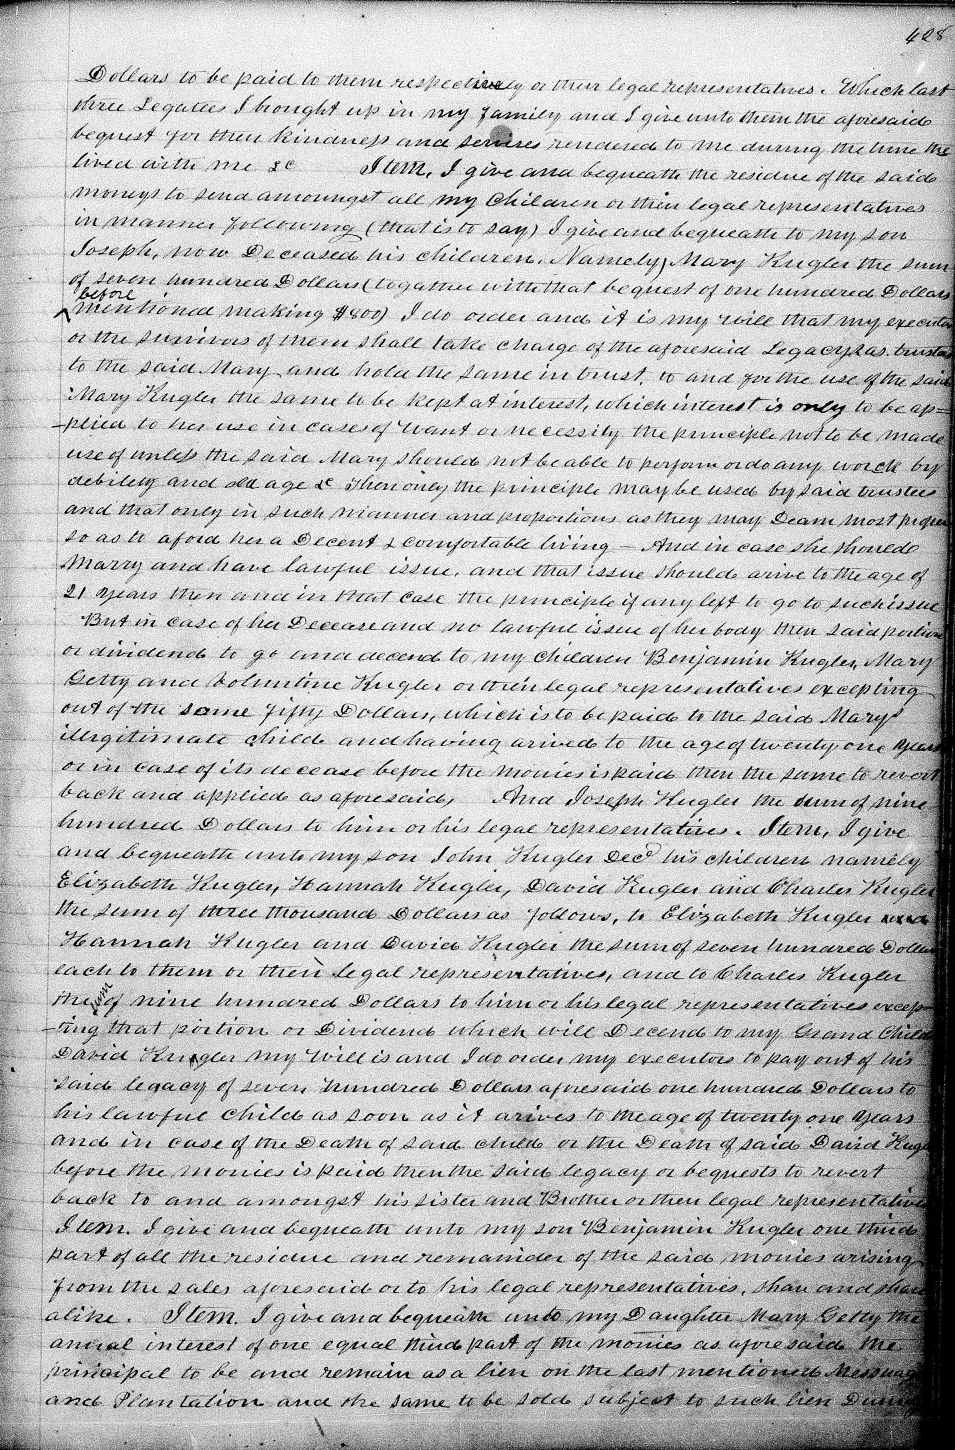 428
Dollars to be paid to them respectively or their legal representatives. Which last
three Legatees I brought up in my family and I give unto them the aforesaid
bequest for their kindness and servises rendered to me during the time the
lived with me &c Item, I give and bequeath the residue of the said
moneys to send amoungst all my Children or their legal representatives
in manner following (that is to say) I give and bequeath to my son
Joseph, now Deceased his children. Namely, Mary Kugler the sum
of seven hundred Dollars (togather with that bequest of one hundred Dollars
before
mentioned making $800) I do order and it is my will that my executors
or the survivors of them shall take charge of the aforesaid Legacy & as trustees
to the said Mary and hold the same in trust, to and for the use of the said
Mary Kugler the same to be kept at interest, which interest is only to be ap=
-plied to her use in cases of want or necessity the principle not to be made
use of unless the said Mary should not be able to perform or do any worck by
debility and old age &c then only the principle may be used by said trustees
and that only in such manner and proportions as they may Deam most proper
so as to aford her a Decent & comfortable living - And in case she should
Marry and have lawful issue, and that issue should arive to the age of
21 years then and in that case the principle if any left to go to such issue
But in case of her Decease and no lawful issue of her body then said portion
or dividend to go and decend to my children Benjamin Kugler, Mary
Getty and Voluntine Kugler or their legal representatives excepting
out of the same fifty Dollars, which is to be paid to the said Mary's
illigitimate child and having arived to the age of twenty one years
or in case of its decease before the monies is paid then the same to revert
back and applied as aforesaid, And Joseph Kugler the sum of nine
hundred Dollars to him or his legal representatives. Item, I give
and bequeath unto my son John Kugler Decd his children namely
Elizabeth Kugler, Hannah Kugler, David Kugler and Charles Kugler
the sum of three thousand Dollars as follows, to Elizabeth Kugler
Hannah Kugler and David Kugler the sum of seven hundred Dollars
each to them or their legal representatives, and to Charles Kugler
the sum of nine hundred Dollars to him or his legal representatives excep-
-ting that portion or Dividend which will Decend to my Grand Child
David Kugler my will is and I do order my executors to pay out of his
said legacy of seven hundred Dollars aforesaid one hundred Dollars to
his lawful child as soon as it arives to the age of twenty one years
and in case of the Death of said child or the Death of said David Kugler
before the monies is paid then the said legacy or bequests to revert
back to and amongst his sister and Brother or their legal representatives
Item. I give and bequeath unto my son Benjamin Kugler one third
part of all the residue and remainder of the said monies arising
from the sales aforesaid or to his legal representatives, shar and share
alike. Item. I give and bequeath unto my Daughter Mary Getty the
anual interest of one equal third part of the monies as aforesaid the
principal to be and remain as a lien on the last mentioned Messuage
and Plantation and the same to be sold subject to such lien During